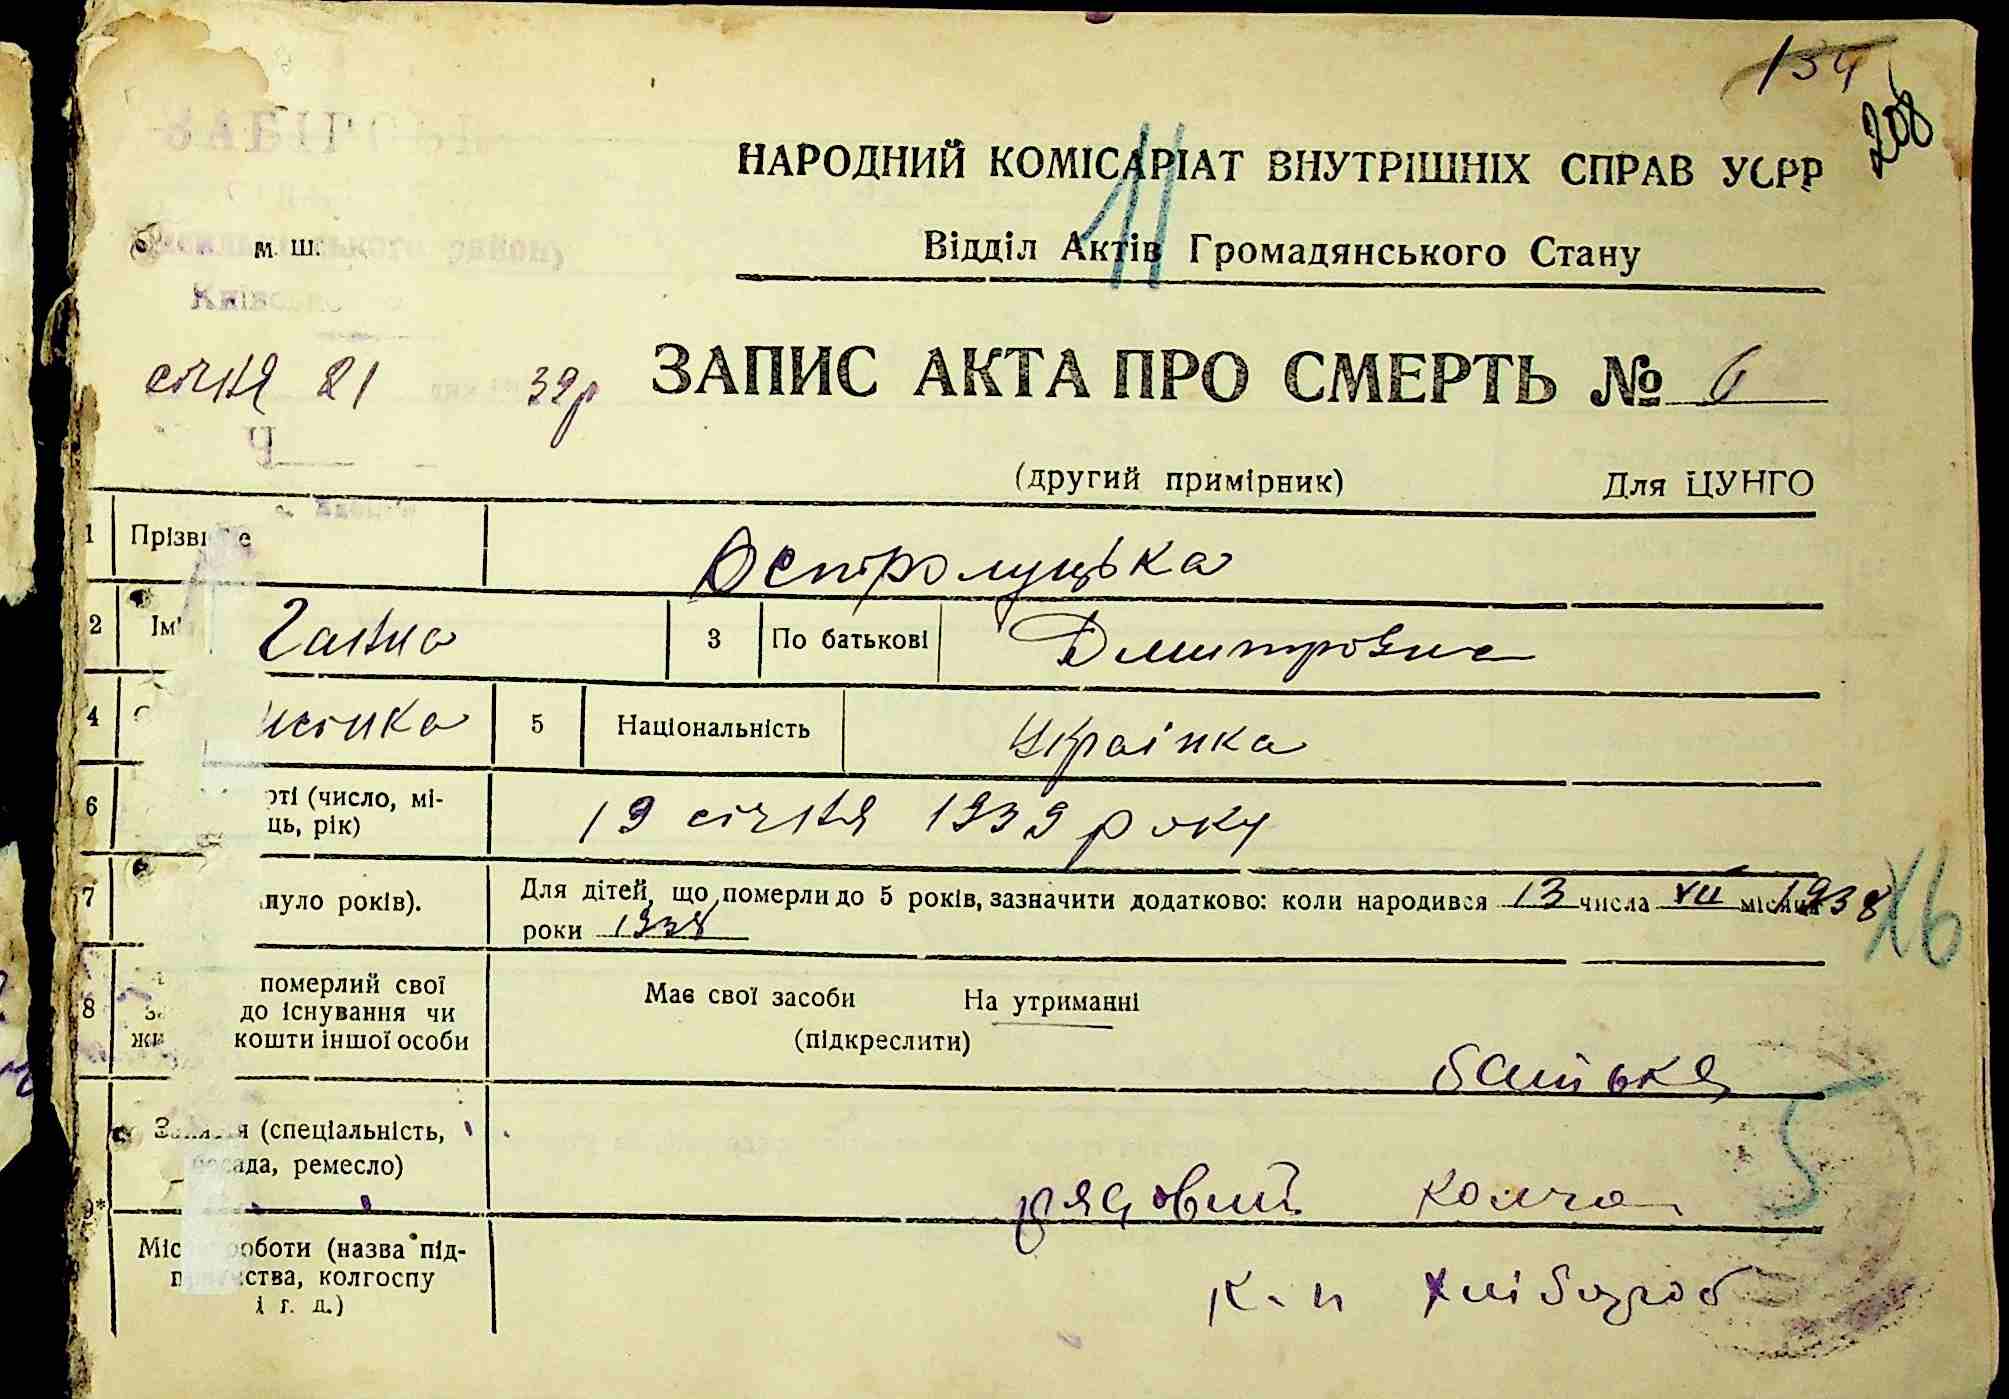 134
208
НАРОДНИЙ КОМІСАРІАТ ВНУТРІШНІХ СПРАВ УСРР
11
м. ш.
Відділ Актів Громадянського Стану
січня 21 39р
ЗАПИС АКТА ПРО СМЕРТЬ № 6
(другий примірник) Для ЦУНГО
1 Прізви е Остролуцька
2 Ім' Ганна 3 По батькові Дмитровна
4 5 Національність Українка
6 рті (число, мі-
ць, рік) 19 січня 1939 року
7 нуло років). Для дітей, що померли до 5 років, зазначити додатково: коли народився 13 числа XII місяця 1938
роки 1938
Х6
8 померлий свої
до існування чи
кошти іншої особи
Має свої засоби На утриманні
(підкреслити)
батька
5
Заняття (спеціальність,
посада, ремесло) рядовий колго
9*
Міс роботи (назва під-
приємства, колгоспу
і г. д.)
к-п Хлібороб